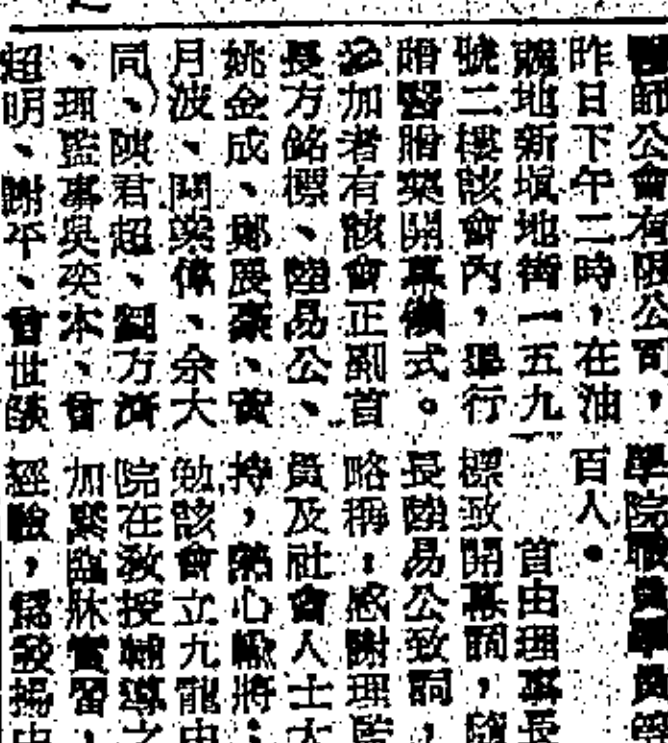 醫師公會有限公司，
昨日下午二時，在油
蔴地新填地街一五九
號二樓該會內，舉行
贈醫贈藥開幕儀式。
參加者有該會正副首
長方銘標、陸易公、
姚金成、鄭展豪、黃
月波、關榮偉、余大
同、陳君超、劉方濟
、理監事吳奕本、曾
超明、謝平、曾世
學院職員學員等
百人。
首由理事長
標致開幕詞，隨
長陸易公致詞，
略稱：感謝理監
員及社會人士大
持，熱心輸將；
勉該會立九龍中
院在教授輔導之
加緊臨牀實習，
經驗，發揚中